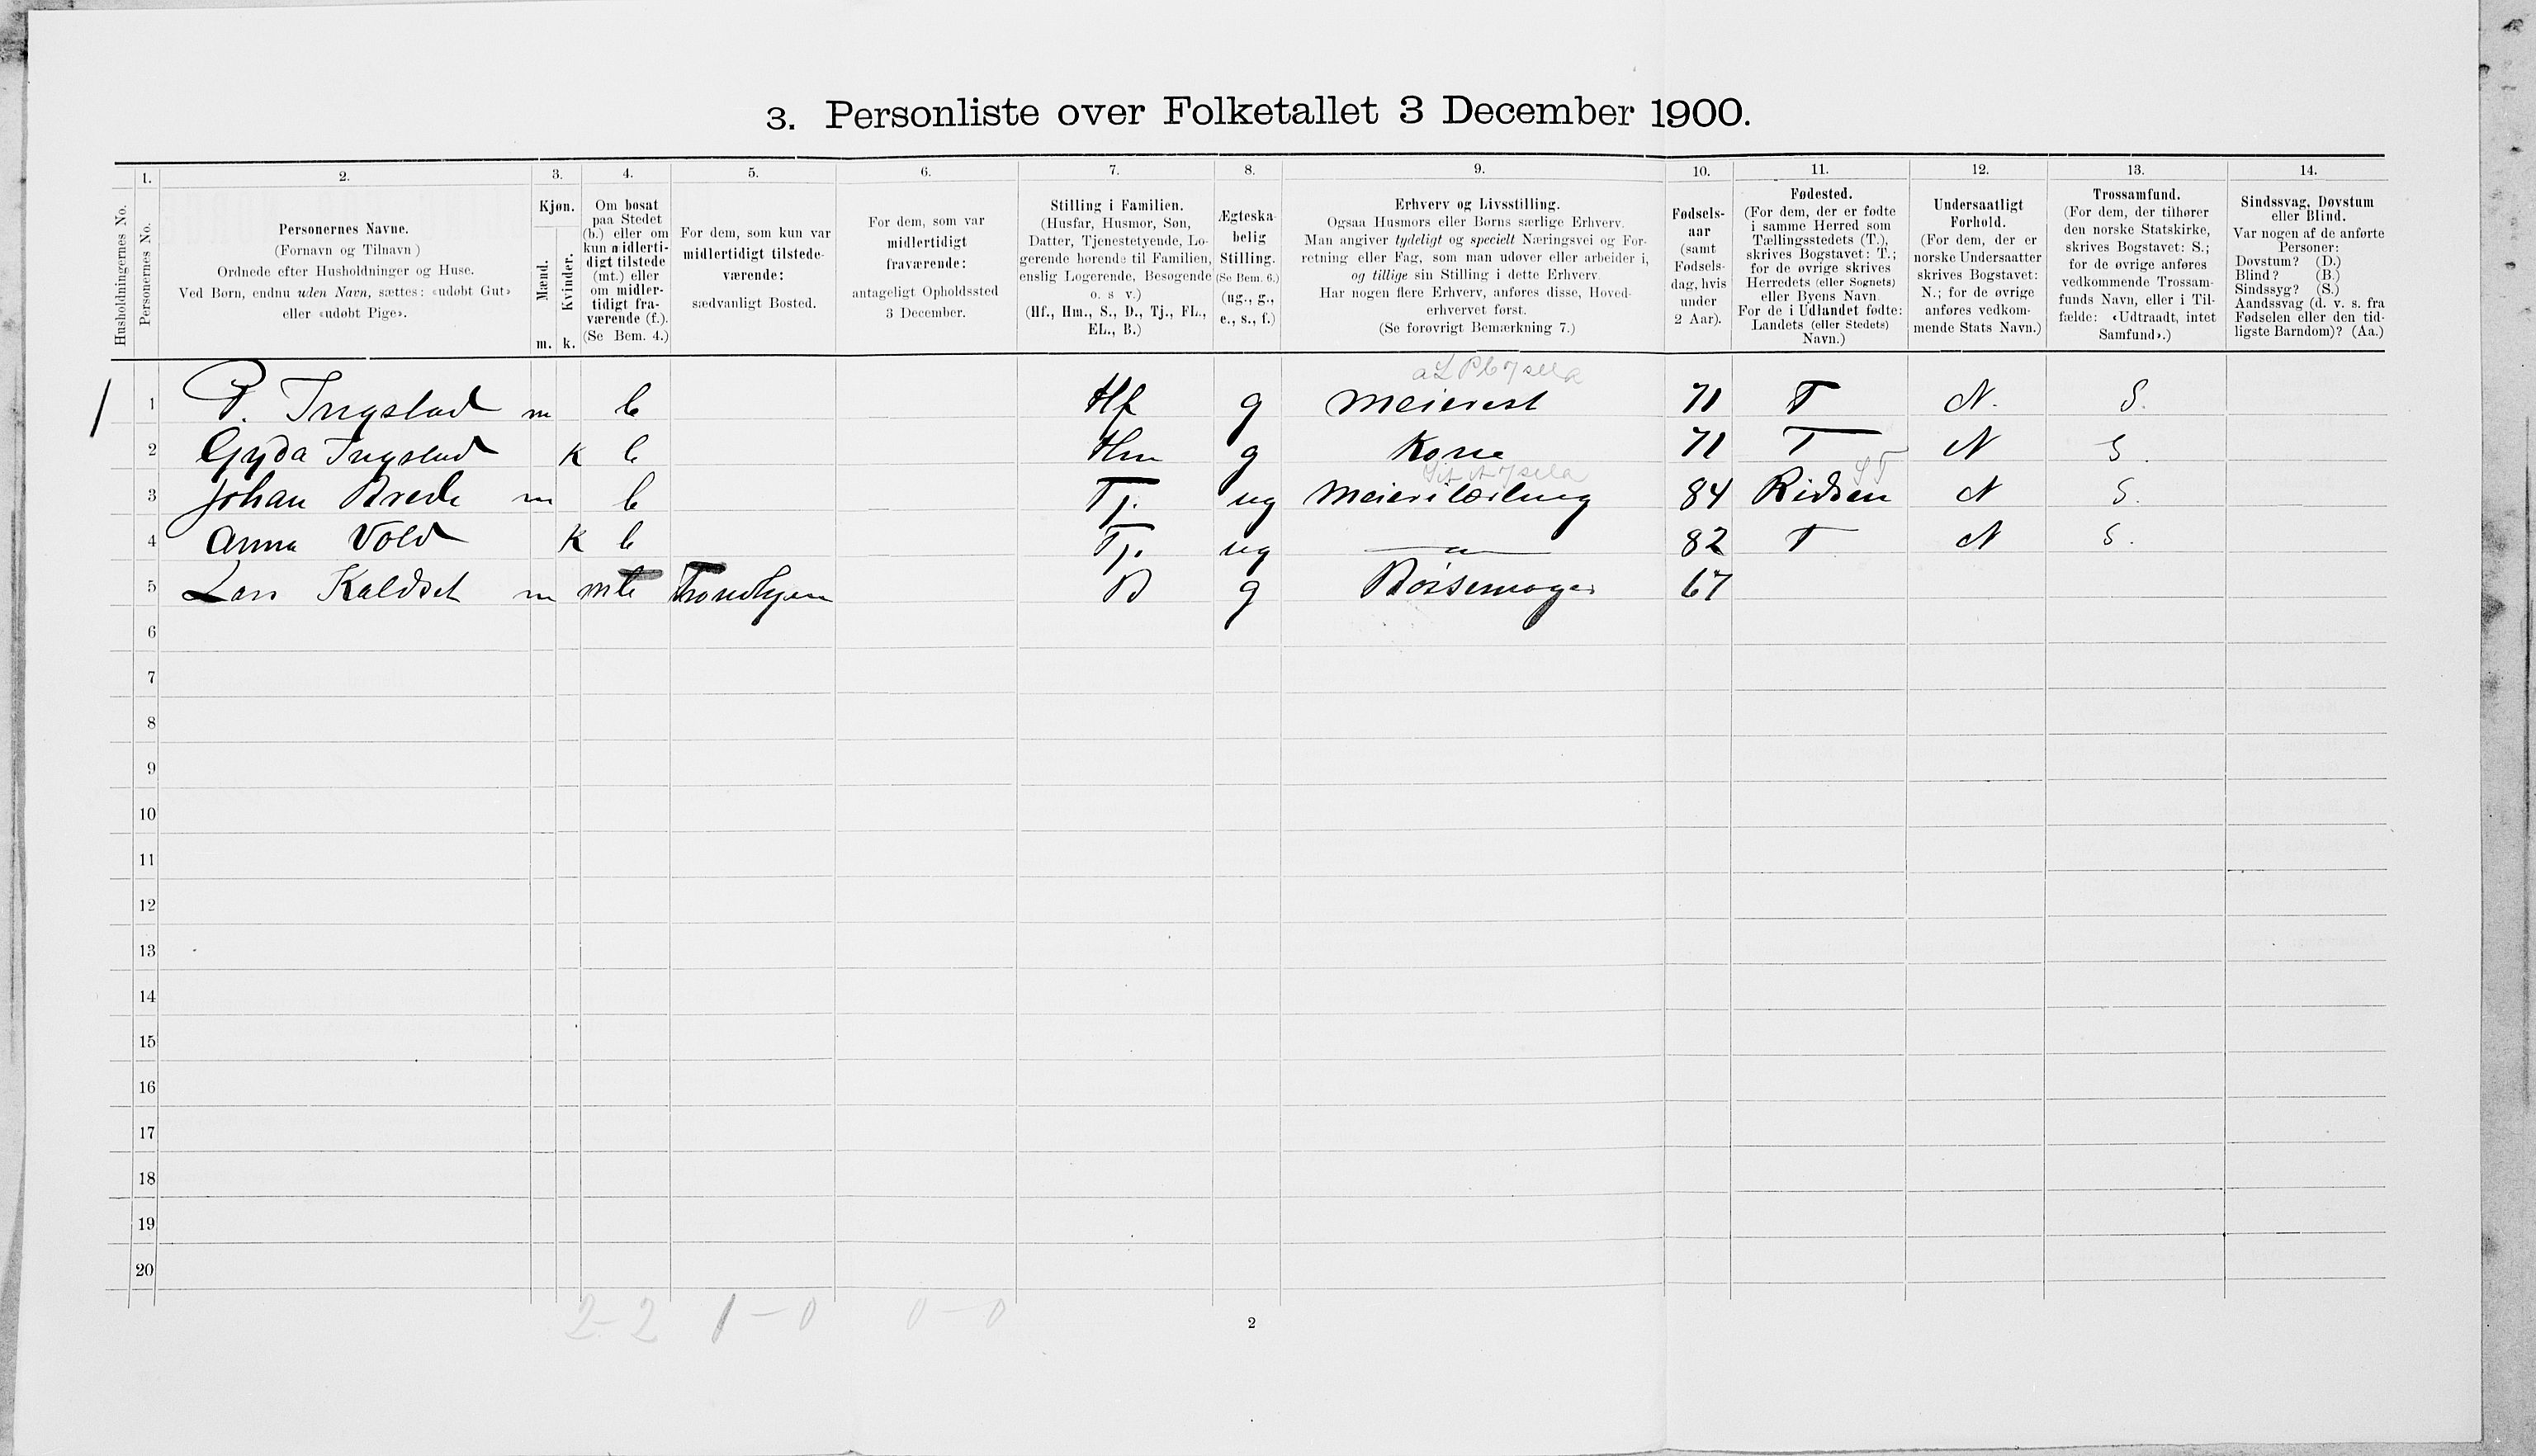 3. Personliste over Folketallet 3 December 1900.
1. 2. 3. 4. 5. 6. 7. 8. 9. 10. 11. 12. 13. 14.
Husholdningernes No.
Personernes No.
Personernes Navne.
(Fornavn og Tilnavn)
Ordnede efter Husholdninger og Huse.
Ved Børn, endnu uden Navn, sættes: «udøbt Gut»
eller «udøbt Pige».
Kjøn.
Mænd.
Kvinder.
m. k.
Om bosat
paa Stedet
(b.) eller om
kun midlerti-
digt tilstede
(mt.) eller
om midler-
tidigt fra-
værende (f.).
(Se Bem. 4.)
For dem, som kun var
midlertidigt tilstede-
værende:
sædvanligt Bosted.
For dem, som var
midlertidigt
fraværende:
antageligt Opholdssted
3 December.
Stilling i Familien.
(Husfar, Husmor, Søn,
Datter, Tjenestetyende, Lo-
gerende hørende til Familien,
enslig Logerende, Besøgende
o. s v.)
(Hf., Hm., S., D., Tj., FL.,
EL., B.)
Ægteska-
belig
Stilling.
(Se Bem. 6.)
(ug., g.,
e., s., f.)
Erhverv og Livsstilling.
Ogsaa Husmors eller Børns særlige Erhverv.
Man angiver tydeligt og specielt Næringsvei og For-
retning eller Fag, som man udøver eller arbeider i,
og tillige sin Stilling i dette Erhverv.
Har nogen flere Erhverv, anføres disse, Hoved-
erhvervet først.
(Se forøvrigt Bemærkning 7.)
Fødsels-
aar
(samt
Fødsels-
dag, hvis
under
2 Aar).
Fødested.
(For dem, der er fødte
i samme Herred som
Tællingsstedets (T.),
skrives Bogstavet: T.;
for de øvrige skrives
Herredets (eller Sognets)
eller Byens Navn.
For de i Udlandet fødte:
Landets (eller Stedets)
Navn.)
Undersaatligt
Forhold.
(For dem, der er
norske Undersaatter
skrives Bogstavet:
N.; for de øvrige
anføres vedkom-
mende Stats Navn.)
Trossamfund.
(For dem, der tilhører
den norske Statskirke,
skrives Bogstavet: S.;
for de øvrige anføres
vedkommende Trossam-
funds Navn, eller i Til-
fælde: «Udtraadt, intet
Samfund».)
Sindssvag, Døvstum
eller Blind.
Var nogen af de anførte
Personer:
Døvstum? (D.)
Blind? (B.)
Sindssyg? (S.)
Aandssvag (d. v. s. fra
Fødselen eller den tid-
ligste Barndom)? (Aa.)
1 1 P. Ingstad m b Hf g Meierest 71 T N. S.
2 Gyda Ingstad K b Hm g Kone 71 T N S.
3 Johan Brede m b Tj. ug Meierilærling 84 Ridsen N S.
4 Anna Vold K b Tj. ug 82 T N S.
5 Lars Kaldset m mt Trondhjem B g Børsemager 67
6
7
8
9
10
11
12
13
14
15
16
17
18
19
20
2-2 1-0 0-0
2